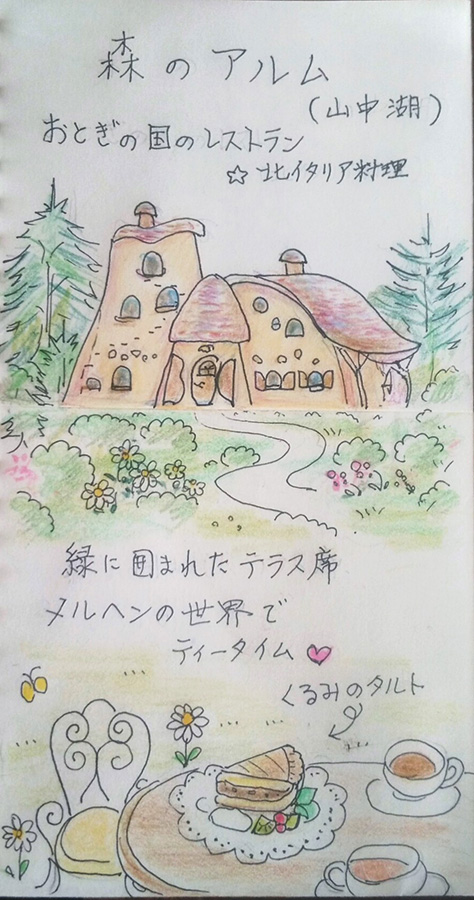 森のアルム
(山中湖)
おとぎの国のレストラン
☆北イタリア料理
緑に囲まれたテラス席
メルヘンの世界で
ティータイム♥
くるみのタルト